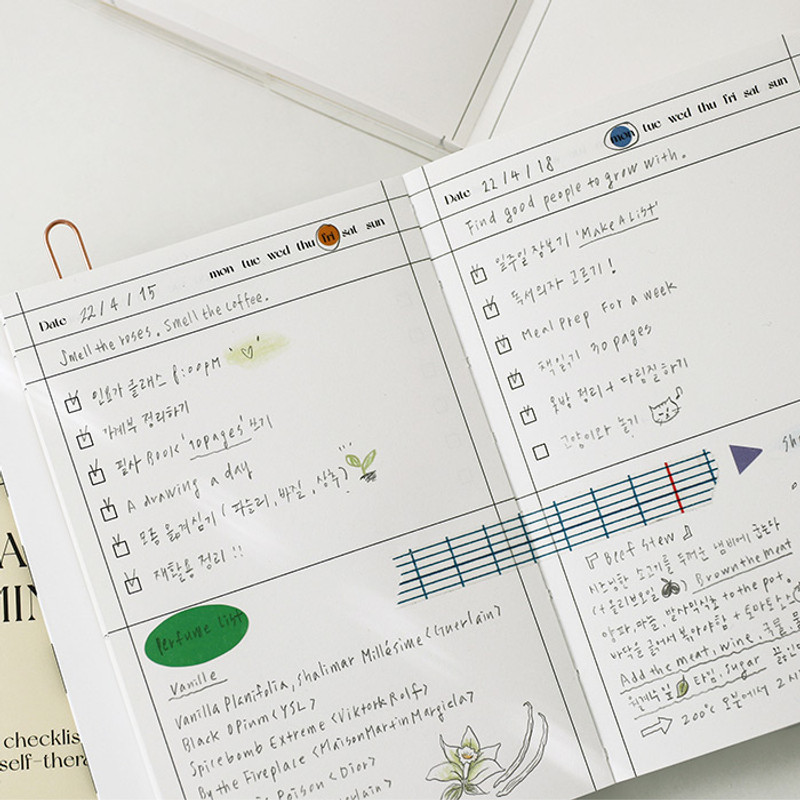 mon tue wed thu fri sat sun
Date 22/4/15
Smell the roses. Smell the coffee.
인요가 클래스 8:00PM
가계부 정리하기
필사 Book '10pages' 쓰기
A drawing a day
모종 옮겨심기 (파슬리, 바질, 상추)
재활용 정리!!
Perfume List
Vanille
Vanilla Planifolia, Shalimar Millésime <Guerlain>
Black Opium <YSL>
Spicebomb Extreme <Viktor&Rolf>
By the Fireplace <MaisonMartinMargiela>
Poison <Dior>
mon tue wed thu fri sat sun
Date 22/4/18
Find good people to grow with.
일주일 장보기 'Make A List'
독서의자 고르기!
Meal prep For a week
책읽기 30 pages
옷방 정리 + 다림질하기
고양이와 놀기
『Beef Stew』
시즈닝한 소고기를 두꺼운 냄비에 굽는다
(+올리브오일) Brown the meat
양파, 마늘, 발사믹식초 to the pot.
바닥을 긁어서 볶아야함 + 토마토
Add the meat, wine, 국물
월계수잎 타임, sugar
200°c 오븐에서 2시
checklis
self-thera